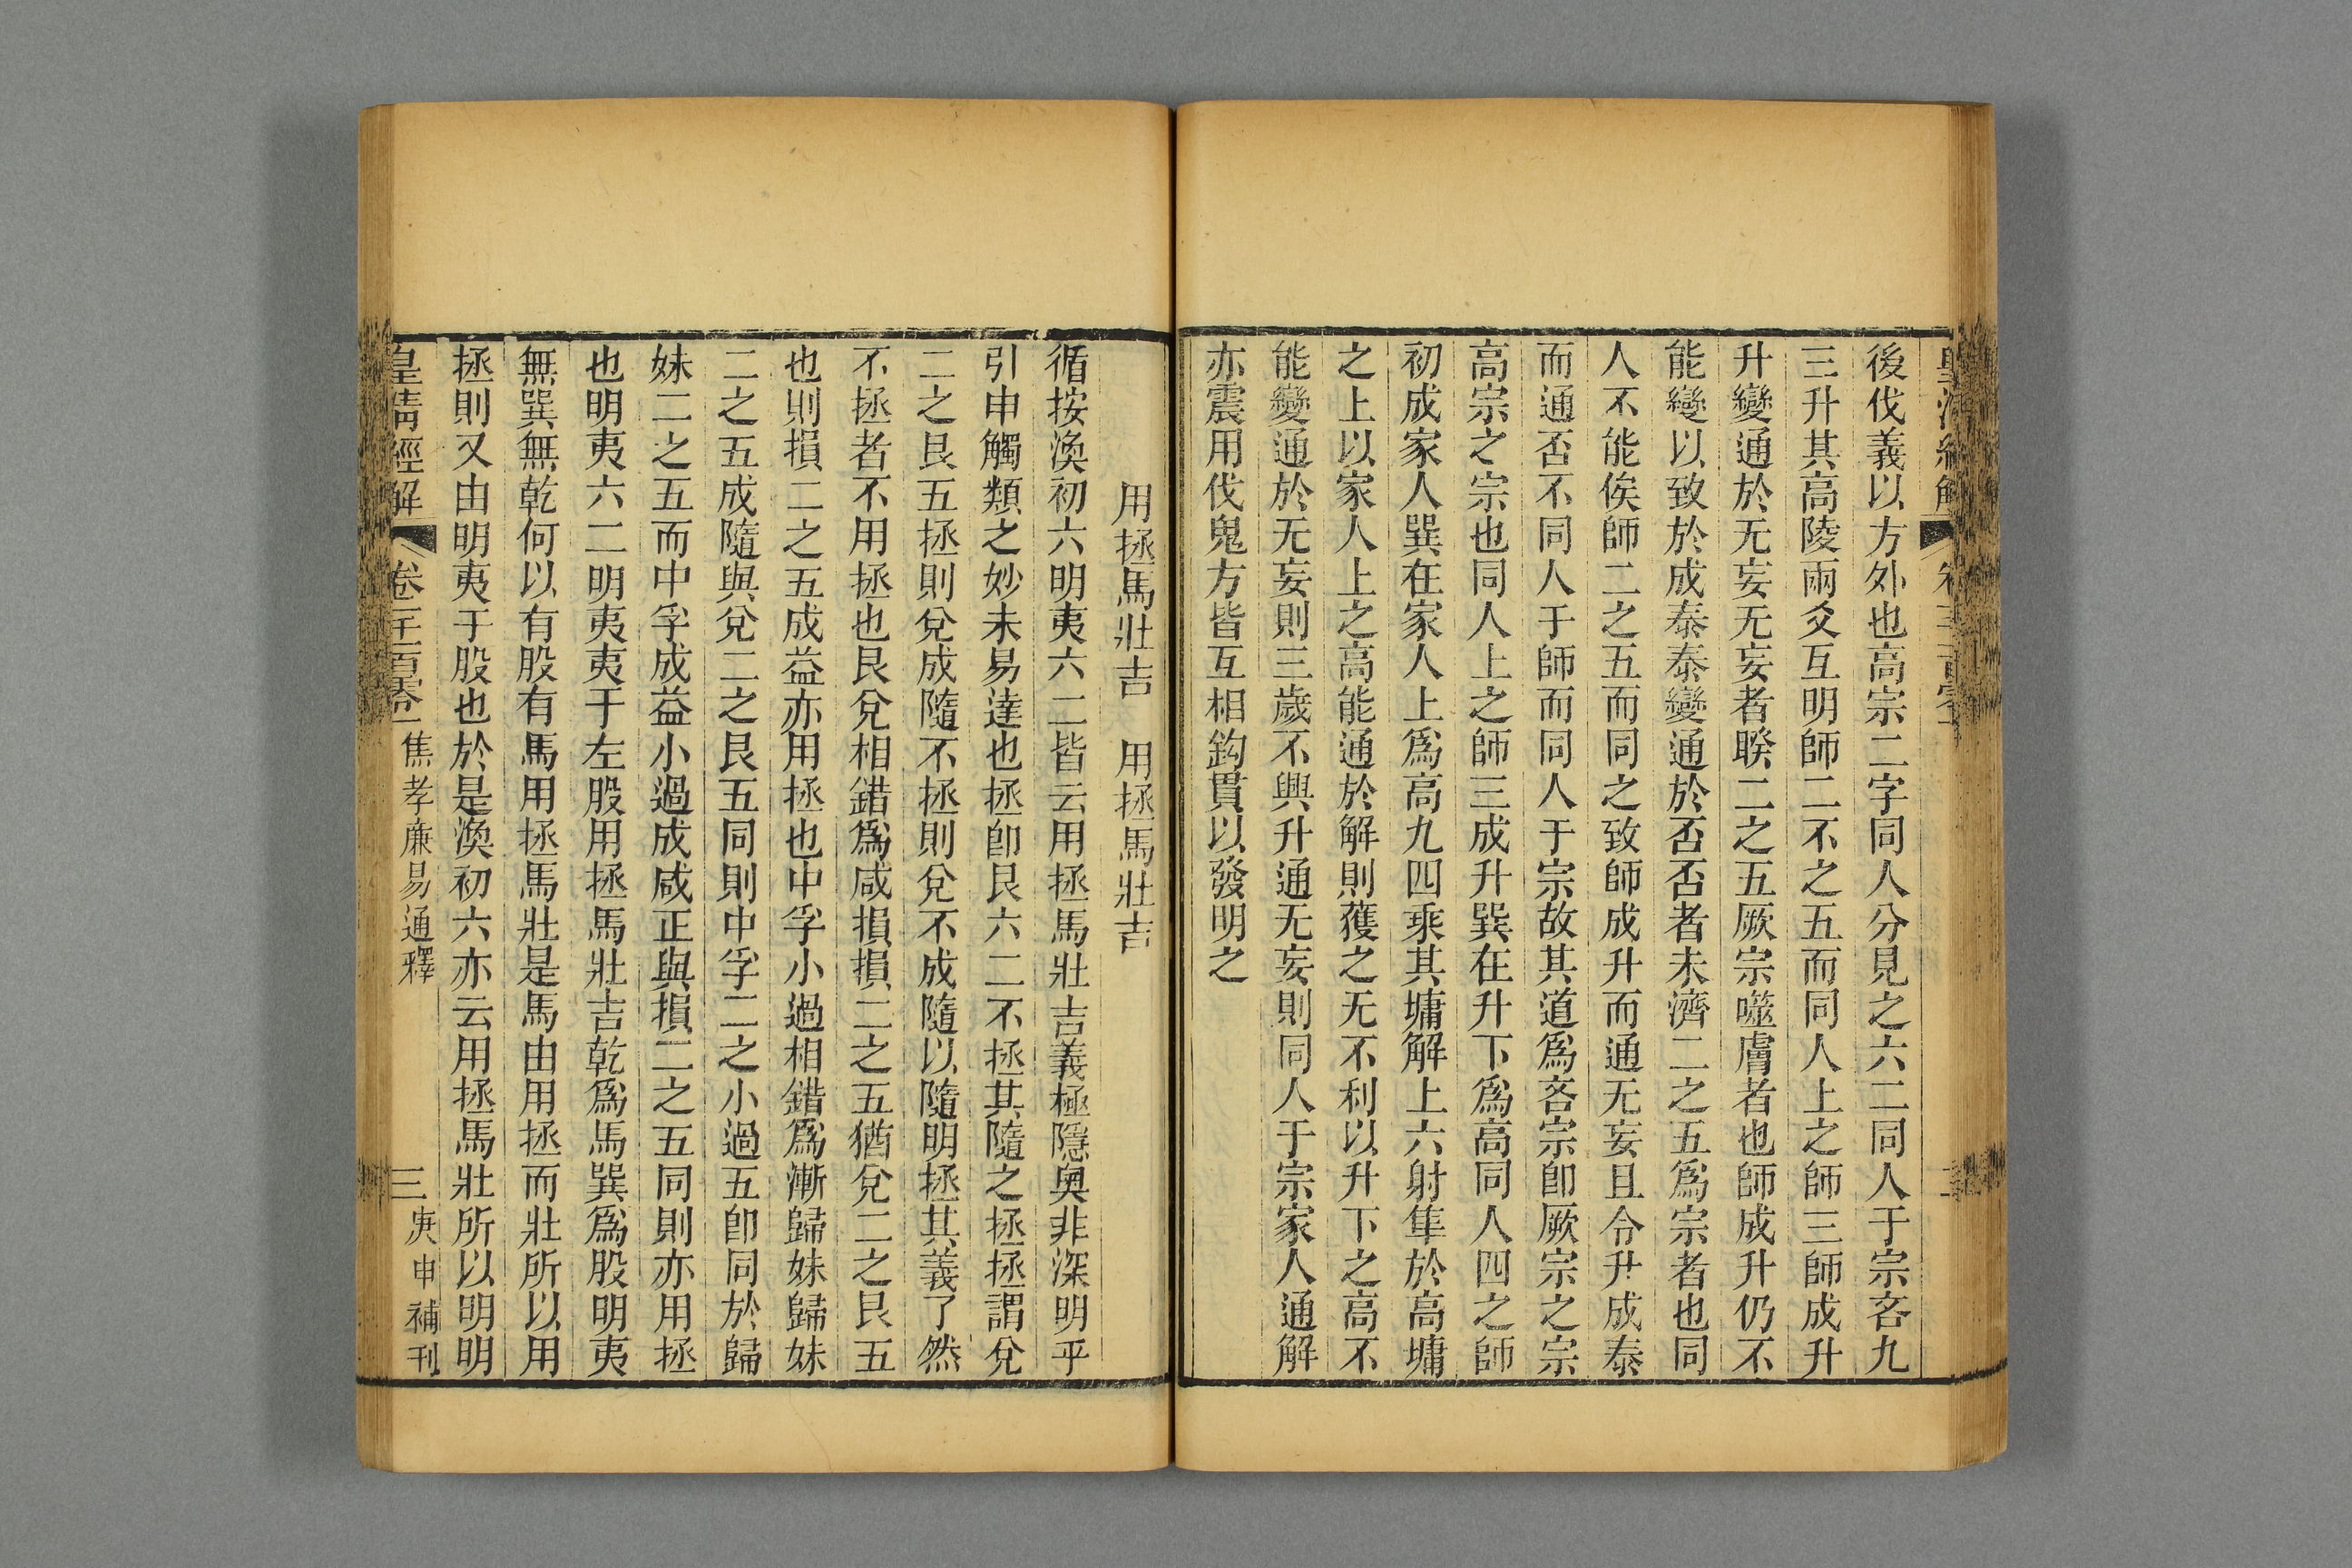 後伐義以方外也高宗二字同人分見之六二同人于宗吝九
三升其高陵兩爻互明師二不之五而同人上之師三師成升
升變通於无妄无妄者睽二之五厥宗噬膚者也師成升仍不
能變以致於成泰泰變通於否否者未濟二之五爲宗者也同
人不能俟師二之五而同之致師成升而通无妄且令升成泰
而通否不同人于師而同人于宗故其道爲吝宗卽厥宗之宗
高宗之宗也同人上之師三成升巽在升下爲高同人四之師
初成家人巽在家人上爲高九四乘其墉解上六射隼於高墉
之上以家人上之高能通於解則獲之无不利以升下之高不
能變通於无妄則三歲不興升通无妄則同人于宗家人通解
亦震用伐鬼方皆互相鈎貫以發明之
用拯馬壯吉 用拯馬壯吉
循按渙初六明夷六二皆云用拯馬壯吉義極隱奧非深明乎
引申觸類之妙未易達也拯卽艮六二不拯其隨之拯拯謂兌
二之艮五拯則兌成隨不拯則兌不成隨以隨明拯其義了然
不拯者不用拯也艮兌相錯爲咸損損二之五猶兌二之艮五
也則損二之五成益亦用拯也中孚小過相錯爲漸歸妹歸妹
二之五成隨與兌二之艮五同則中孚二之小過五卽同於歸
妹二之五而中孚成益小過成咸正與損二之五同則亦用拯
也明夷六二明夷夷于左股用拯馬壯吉乾爲馬巽爲股明夷
無巽無乾何以有股有馬用拯馬壯是馬由用拯而壯所以用
拯則又由明夷于股也於是渙初六亦云用拯馬壯所以明明
皇清經解 卷三百零一 焦孝廉易通釋 三 庚申補刊